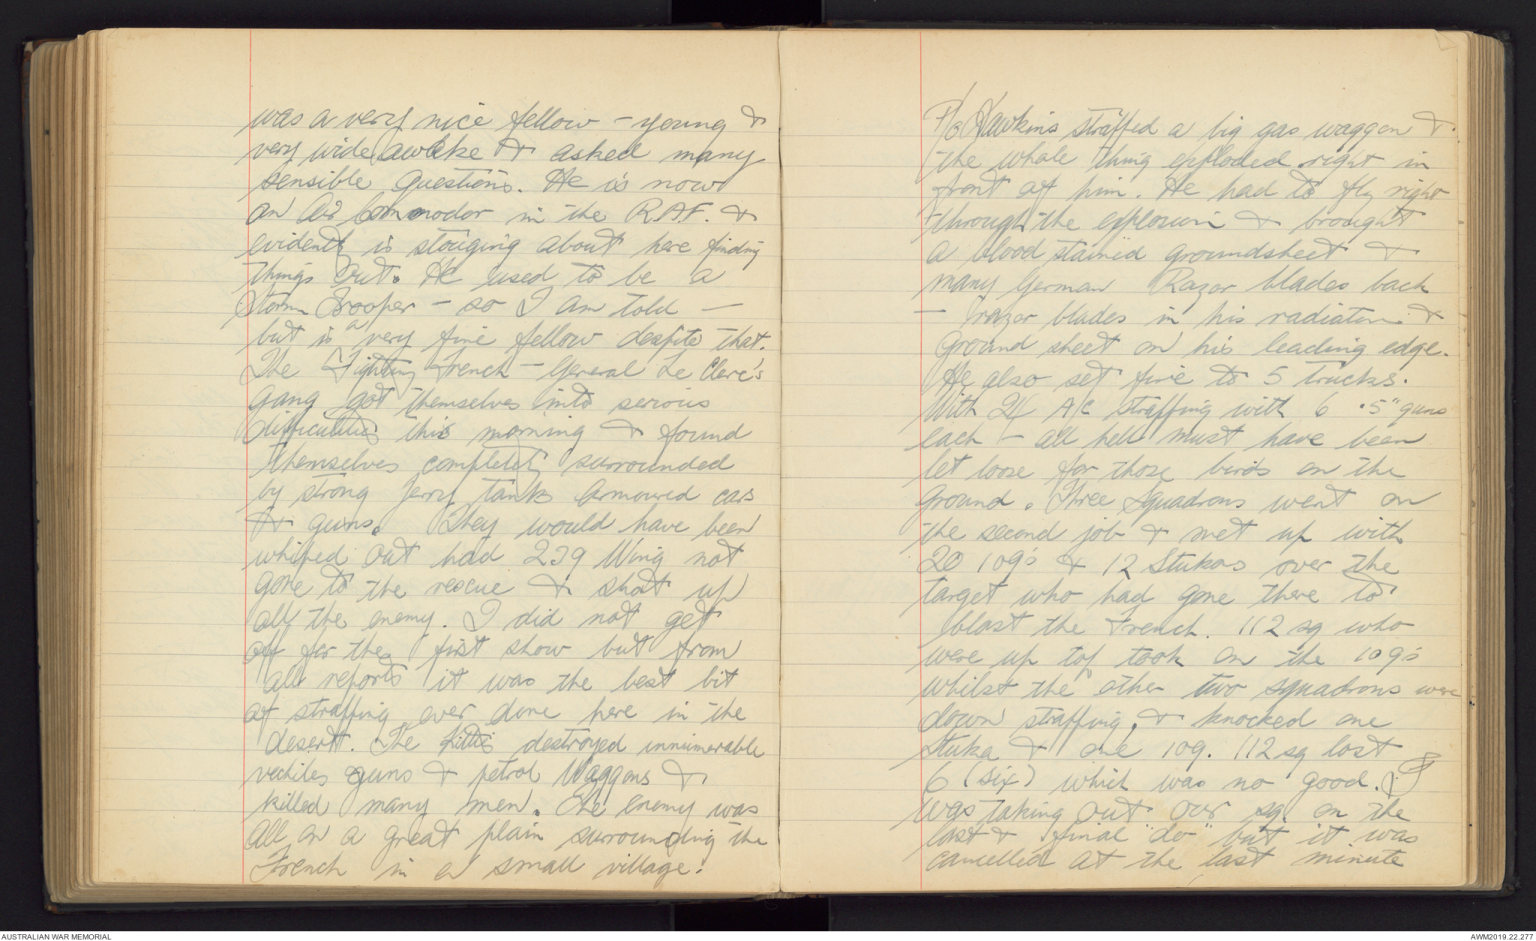 was a very nice fellow - young &
very wide awake & asked many
sensible questions. He is now
an Air Commodor in the RAF. &
evidently is stouging about here finding
things out. He used to be a
Storm Trooper - so I am told -
but is a very fine fellow despite that.
The Fighting French - General Le Clerc's
gang got themselves into serious
difficulties this morning & found
themselves completely surrounded
by strong Jerry tanks armoured cars
& guns. They would have been
whiped out had 239 Wing not
gone to the rescue & shot up
all the enemy. I did not get
off for the first show but from
all reports it was the best bit
of straffing ever done here in the
desert. The Kittis destroyed innumerable
vechiles guns & petrol waggons &
killed many men. The enemy was
all on a great plain surrounding the
French in a small village.
P/O Hawkins straffed a big gas waggon &
the whole thing exploded right in
front of him. He had to fly right
through the explosion & brought
a blood stained groundsheet &
many German Razor blades back
- razer blades in his radiator &
ground sheet on his leading edge.
He also set fire to 5 trucks.
With 24 A/C straffing with 6 .5" guns
each - all hell must have been
let loose for those birds on the
ground. Three squadrons went on
the second job & met up with
20 109's & 12 Stukas over the
target who had gone there to
blast the French. 112 sq who
were up top took on the 109's
whilst the other two squadrons were
down straffing. & knocked one
Stuka & one 109. 112 sq lost
6 (six) which was no good. I
was taking out our sq on the
last & final "do" but it was
cancelled at the last minute
AUSTRALIAN WAR MEMORIAL
AWM2019.22.277